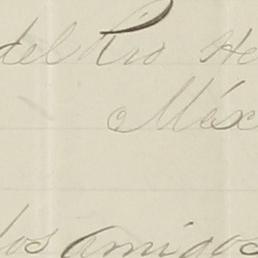 del Rio He
Méx
los amigos